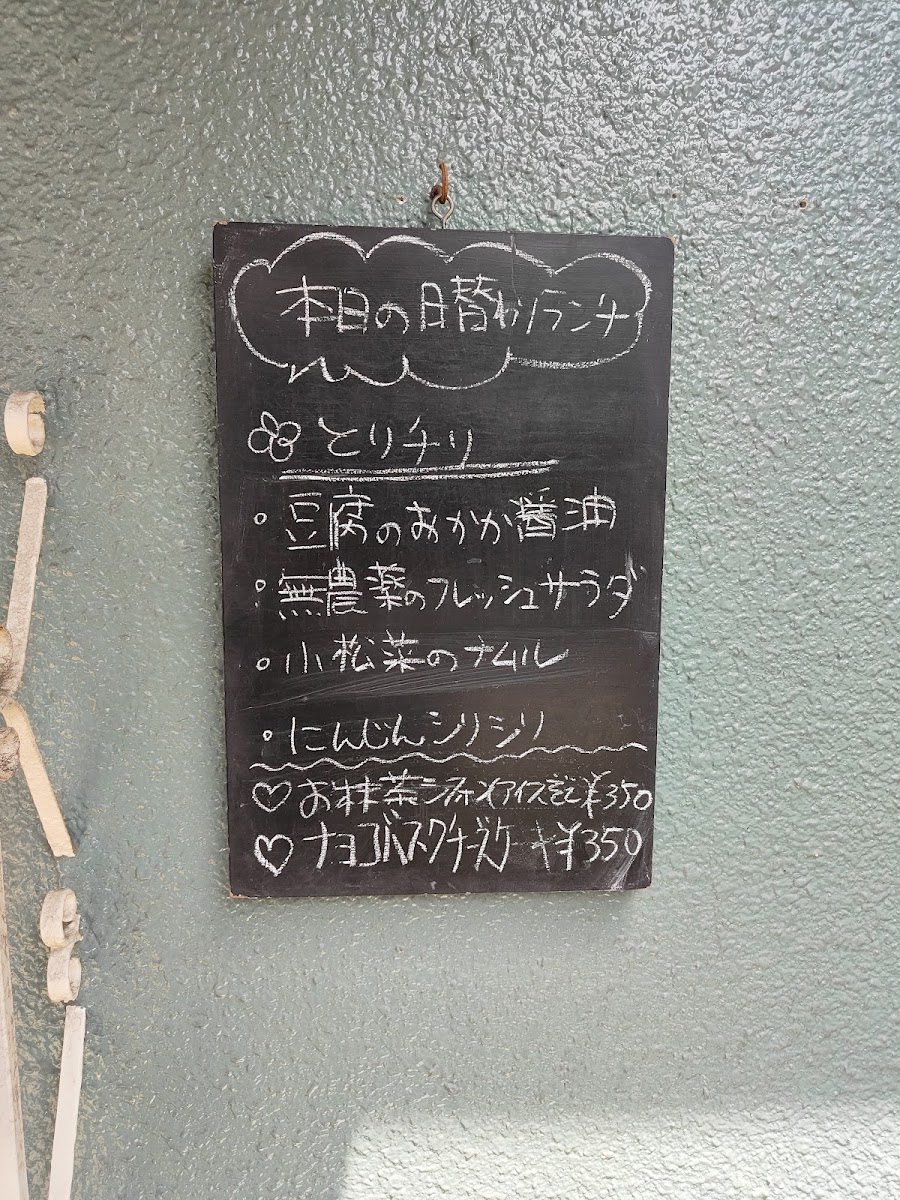 本日の日替わりランチ
とりチリ
・豆腐のおかか醤油
・無農薬のフレッシュサラダ
・小松菜のナムル
・にんじんシリシリ
♡お抹茶シフォンアイス ¥350
♡チョコバスクチーズケーキ ¥350